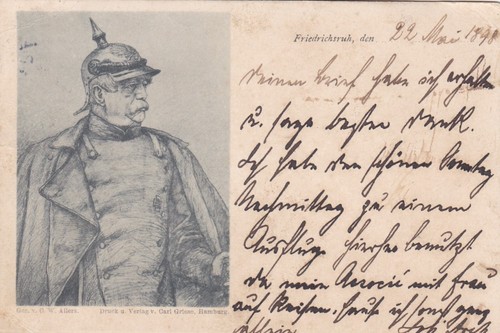 Friedrichsruh, den 22 Mai 189
Deinen brief habe ich erhalten
u. sage besten Dank.
Ich habe den schönen Sonntag
Nachmittag zu einem
Ausfluge hierher benutzt
da mein Associé mit Frau
auf Reisen. ich sonst ganz
allein
Gez. v. C. W. Allers. Druck u. Verlag v. Carl Griese, Hamburg.